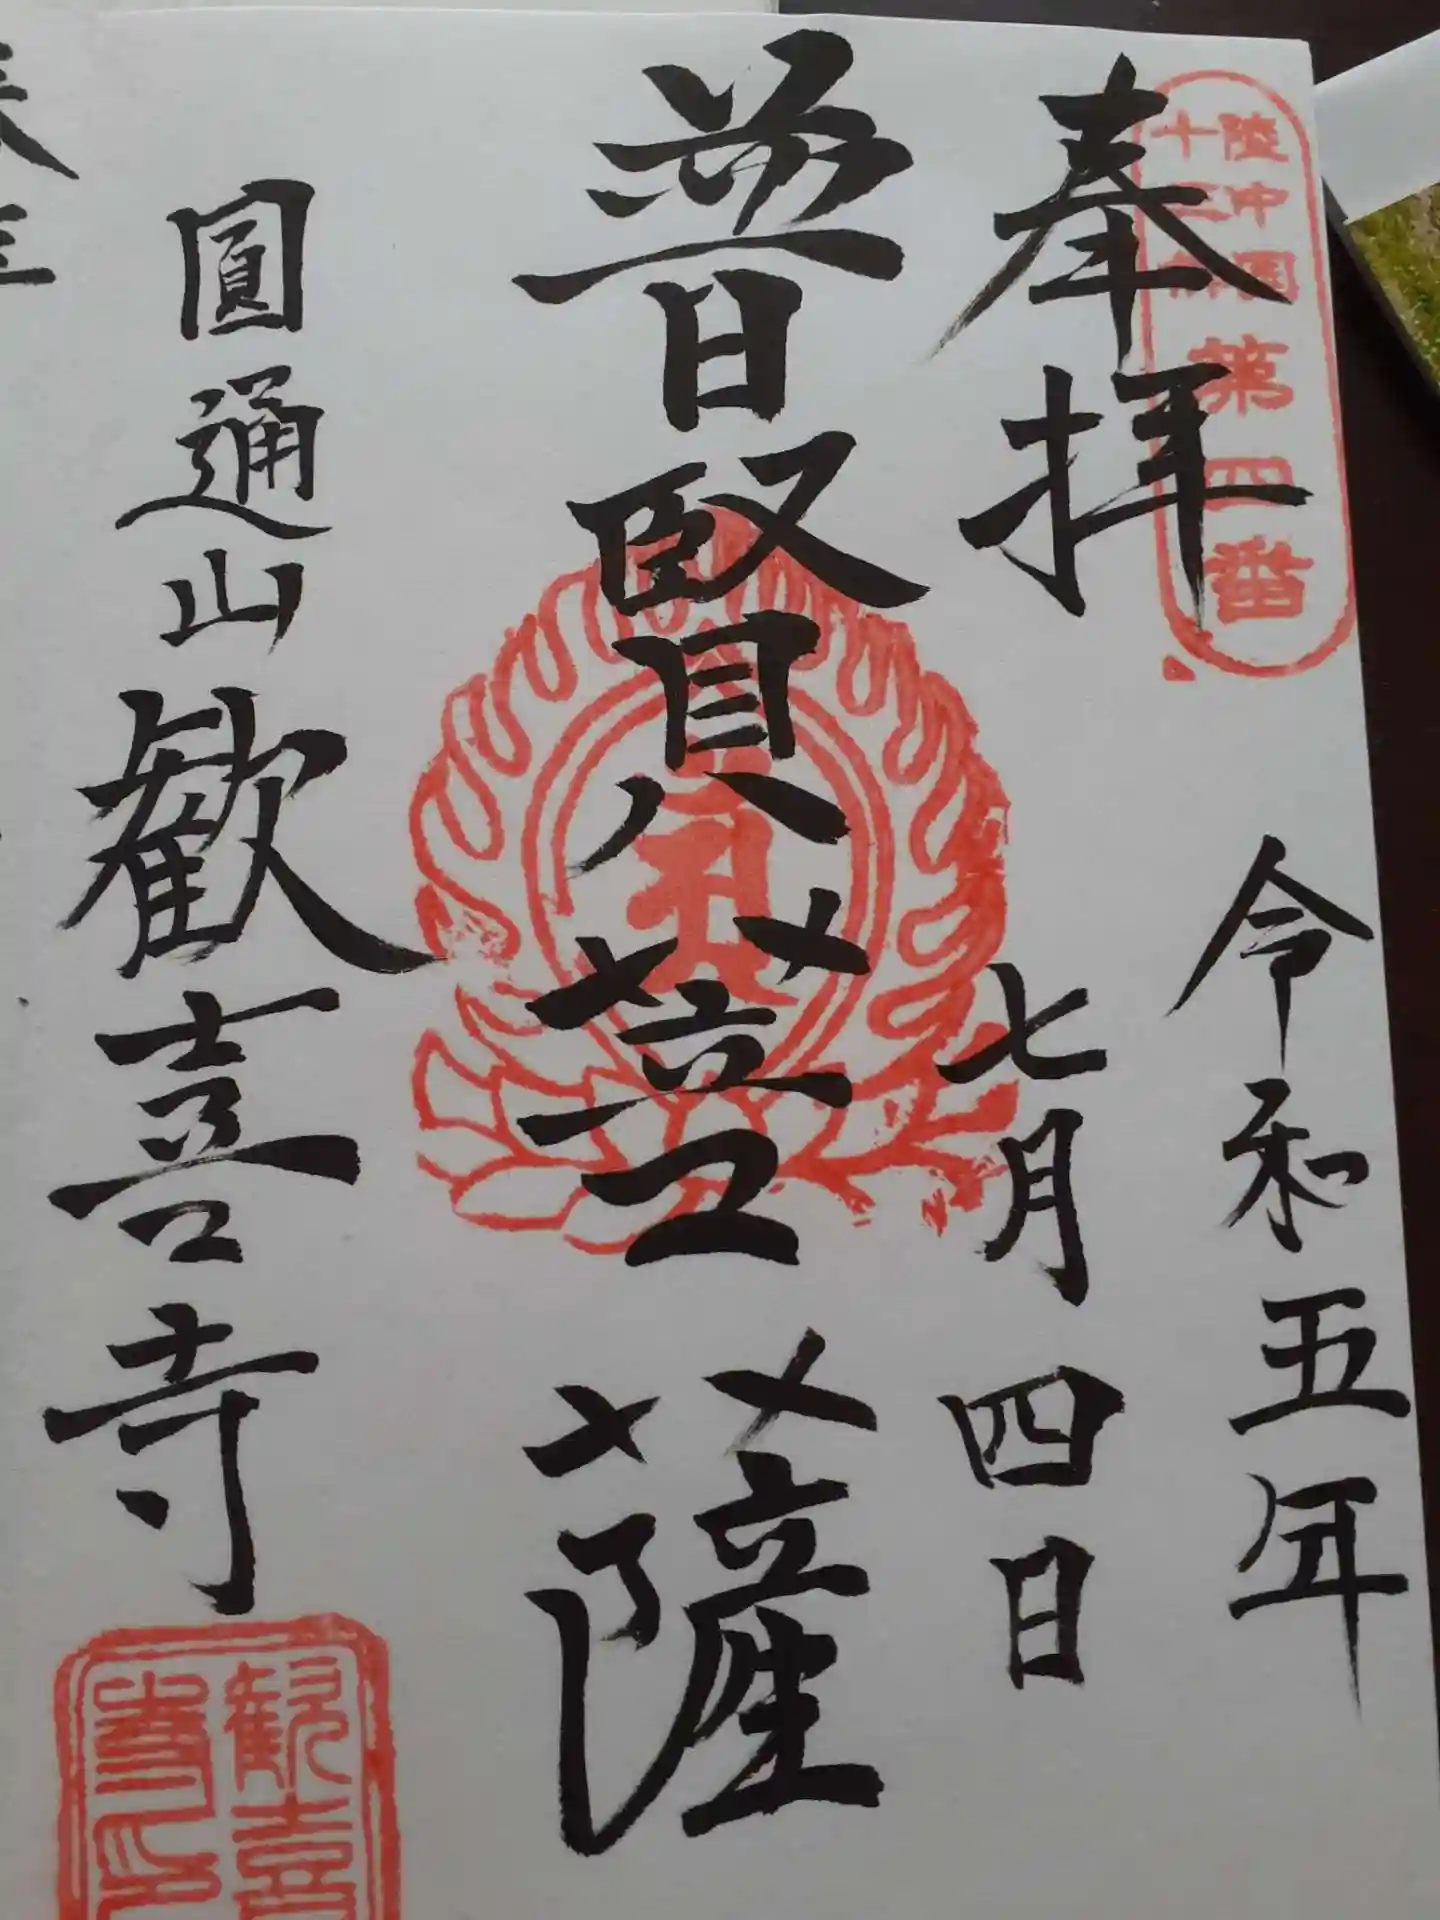 奉拝
陸中国
十三佛
第四番
令和五年
七月四日
普賢菩薩
圓通山歓喜寺
歓喜
寺印